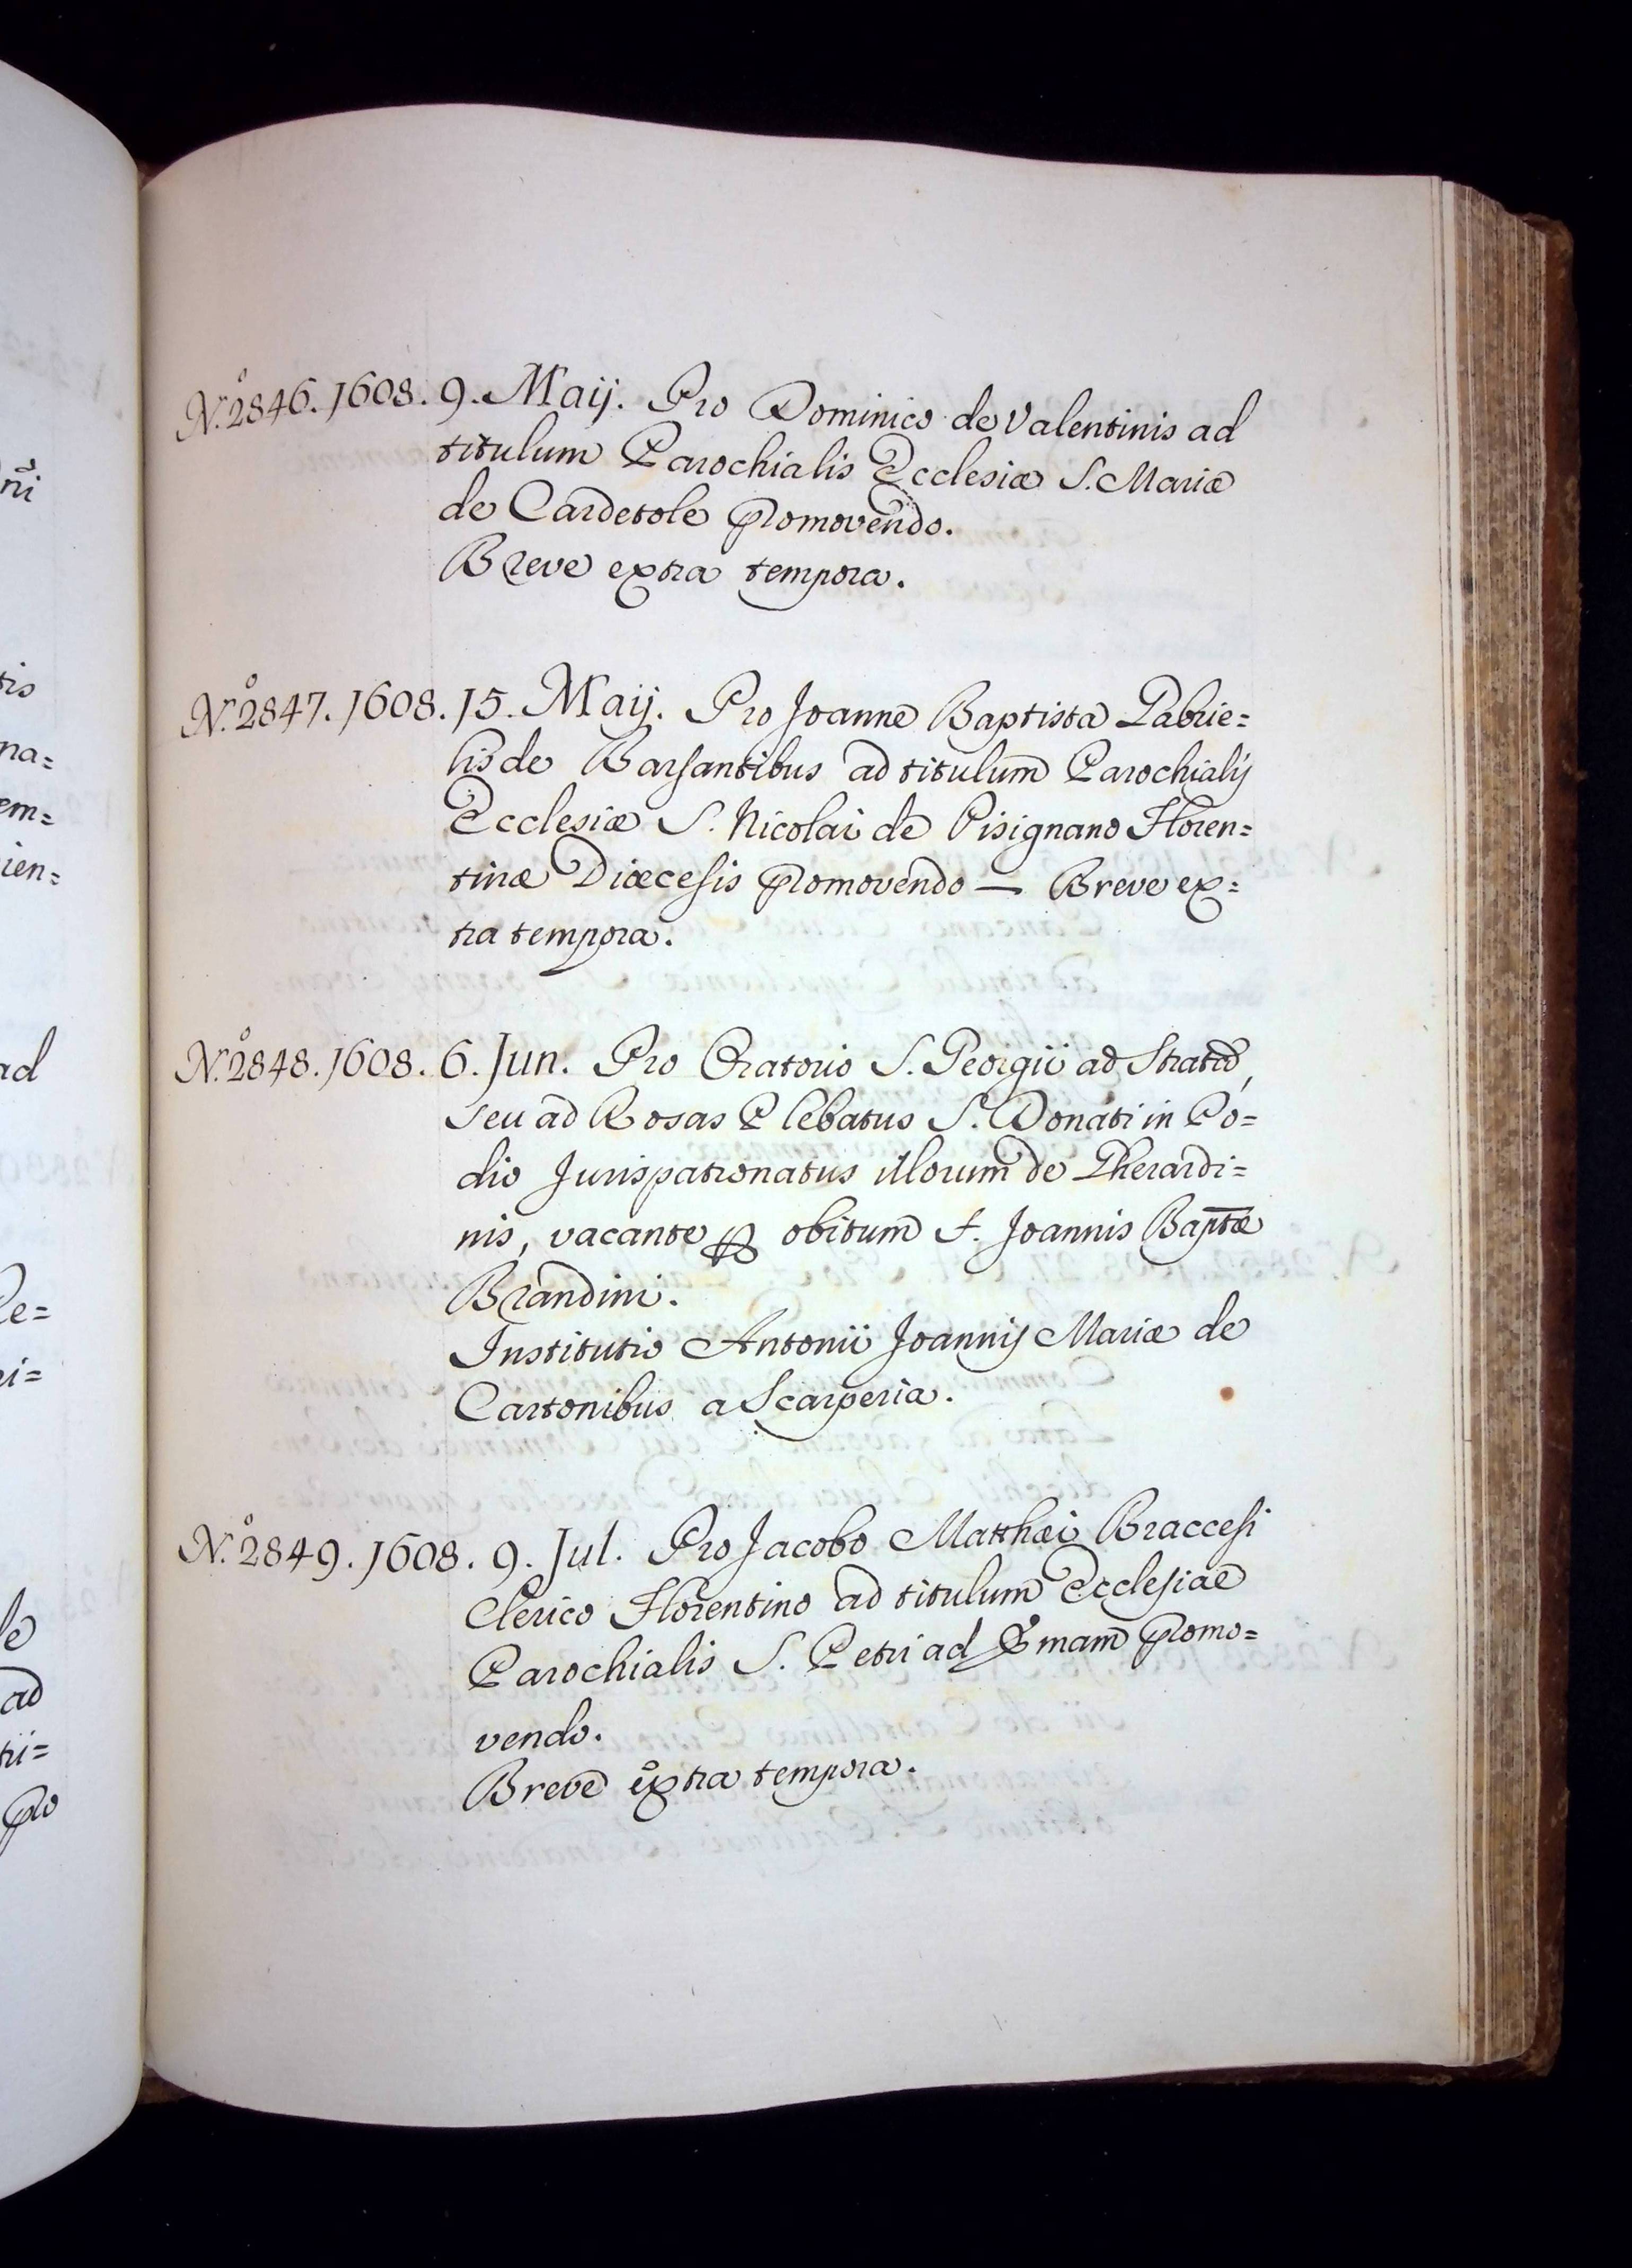 N.º 2846. 1608. 9. Maij. Pro Dominico de Valentinis ad
titulum Parochialis Ecclesiæ S. Mariæ
de Cardetole promovendo.
Breve extra tempora.
N.º 2847. 1608. 15. Maij. Pro Joanne Baptista Gabrie=
lis de Barsantibus ad titulum Parochialis
Ecclesiæ S. Nicolai de Pisignano Floren=
tinæ Diœcesis promovendo — Breve ex=
tra tempora.
N.º 2848. 1608. 6. Jun. Pro Oratorio S. Georgii ad Stratã,
seu ad Rosas Plebatus S. Donati in Po=
dio Jurispatronatus illorum de Gherardi=
nis, vacante per obitum f. Joannis Baptæ
Brandini.
Institutio Antonii Joannis Mariæ de
Cartonibus a Scarperia.
N.º 2849. 1608. 9. Jul. Pro Jacobo Matthæi Braccesi
Clerico Florentino ad titulum Ecclesiae
Parochialis S. Petri ad Emam promo=
vendo.
Breve extra tempora.
ñi
tis
na=
em=
ien=
ad
i=
le
ad
tri=
pro